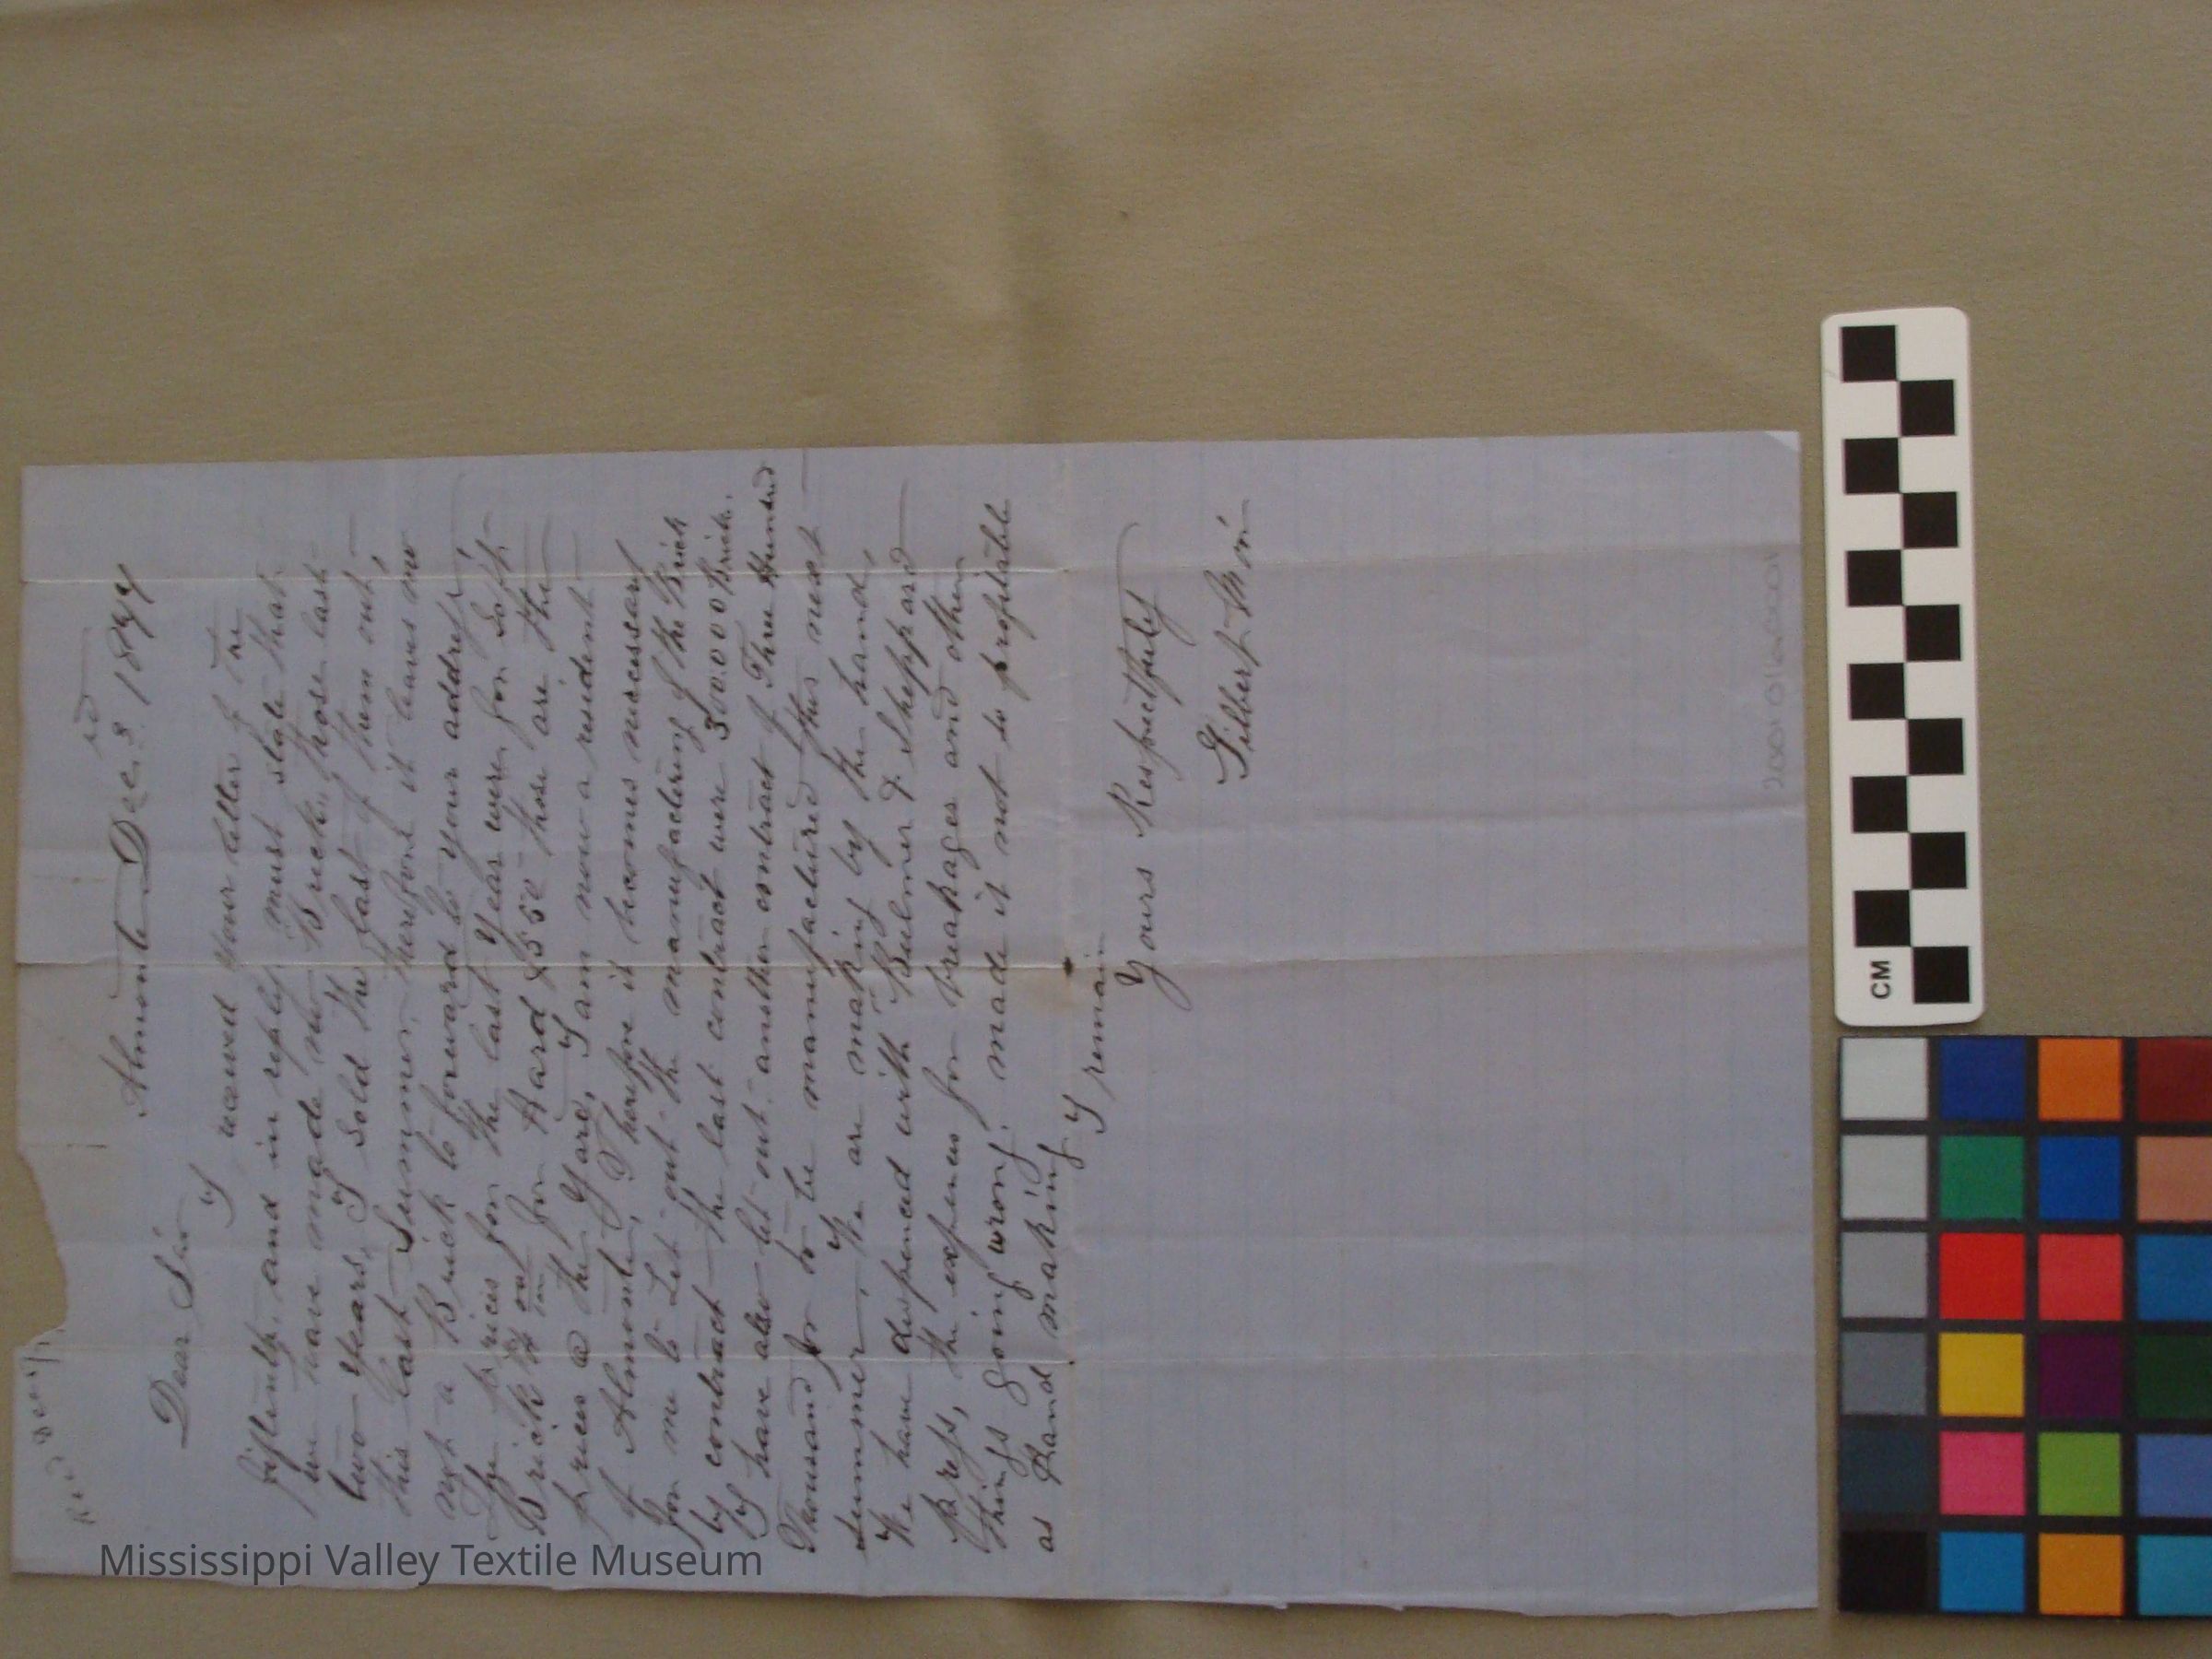 Recd Dec 5/
Almonte Dec. 3rd 1844
Dear Sir
I received your letter of the
fiftenth, and in reply must state that
we have made no Brick, those last
two years, I Sold the last of them out,
this last Summer, therefore it leaves me
not a Brick to forward to your address,
The prices for the last year were for Soft
Brick for Hard $5.50 those are the
prices @ the Yard, I am now a resident
of Almonte, Therefore it becomes necessary
for me to Let out the manufacturing of the Brick
by contract the last contract were 300.000 Brick.
I have also let out another contract of Three Hundred
Thousand for to be manufactured this next
summer, We are making by the hand,
We have dispensed with Bulmer & Sheppard
press, the expences for breakages and other
things going wrong, made it not so profitable
as Hand making
I remain
Yours Respectfuly
Gilbert
2001.016.0001
CM
Mississippi Valley Textile Museum